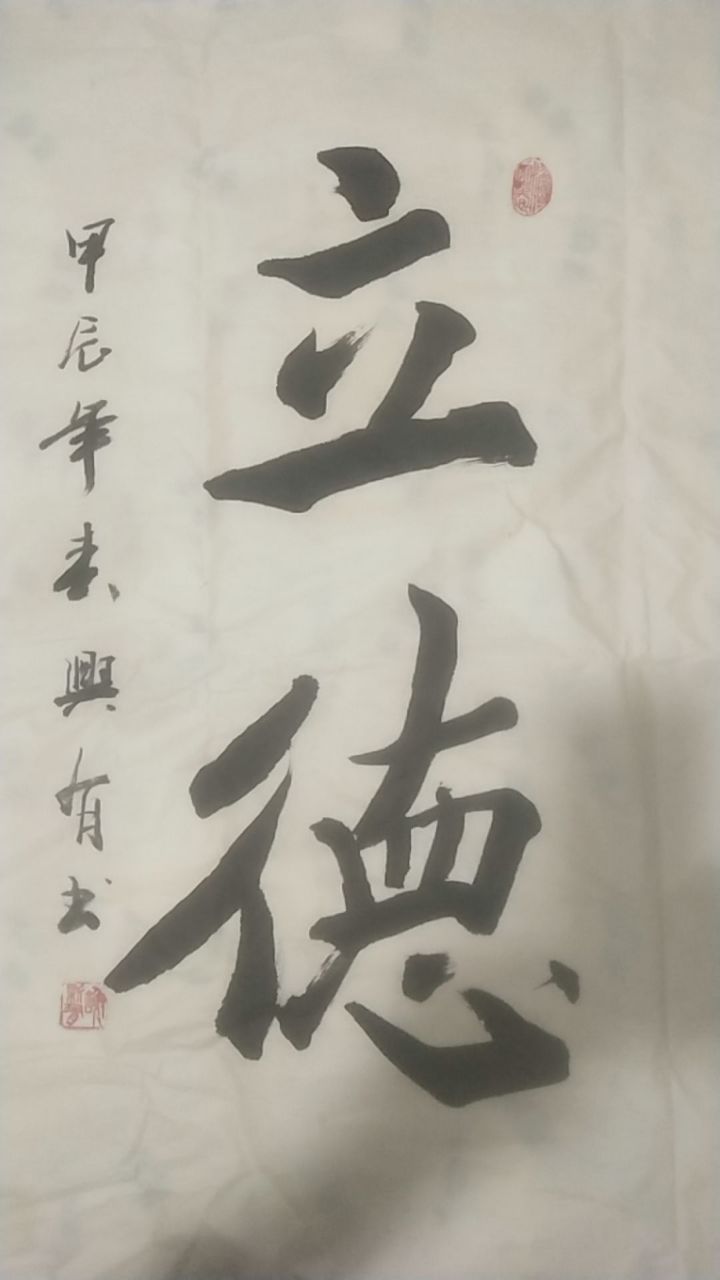 立德
甲辰年春興有书